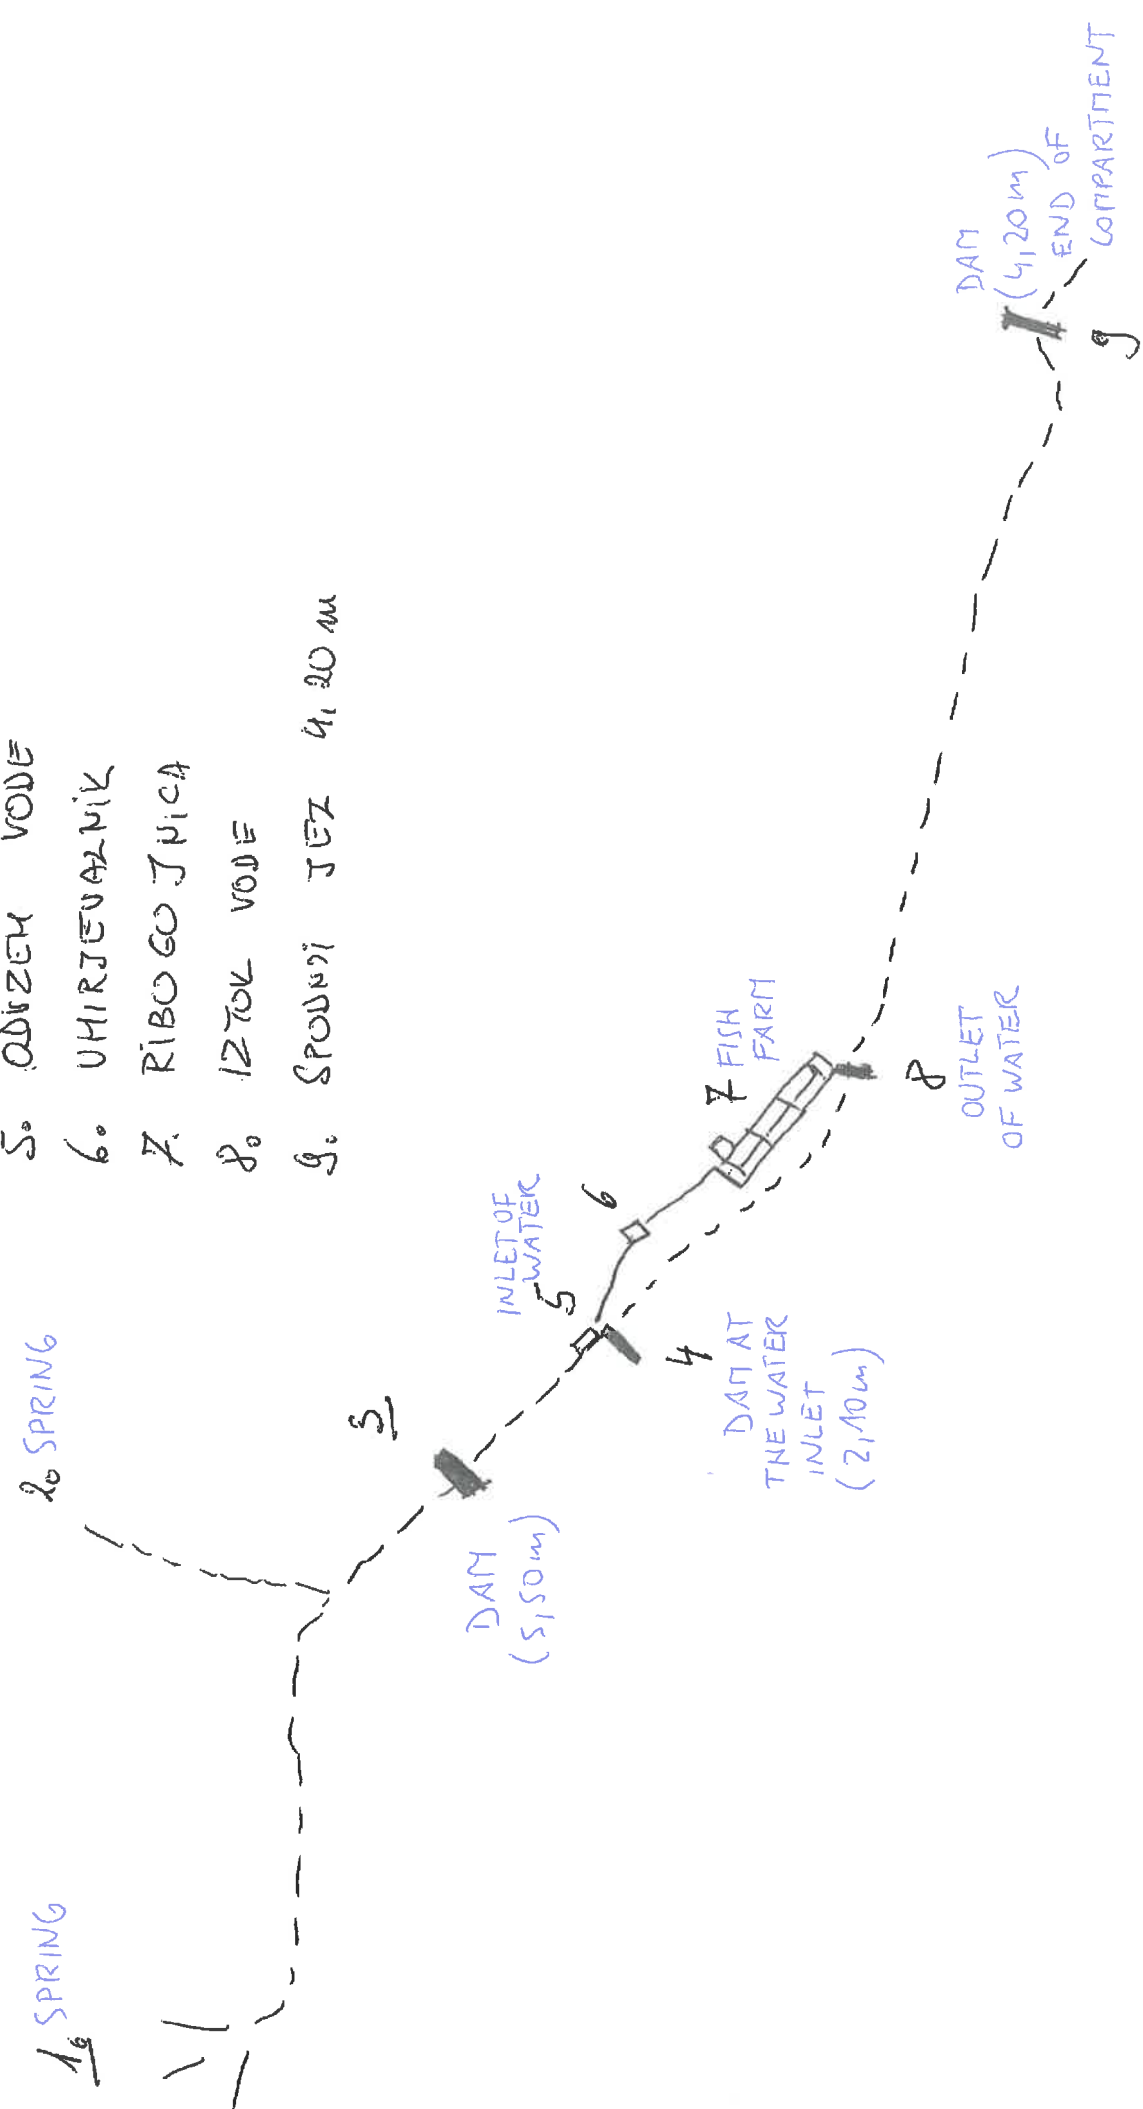 5. ODVZEM VODE
6. UMIRJEVALNIK
7. RIBOGOJNICA
8. IZTOK VODE
9. SPODNJI JEZ 4,20 m
1. SPRING
2. SPRING
3
DAM
(5,50m)
4
DAM AT
THE WATER
INLET
(2,10m)
INLET OF
WATER
5
6
7 FISH
FARM
8
OUTLET
OF WATER
DAM
(4,20m)
END OF
COMPARTMENT
9